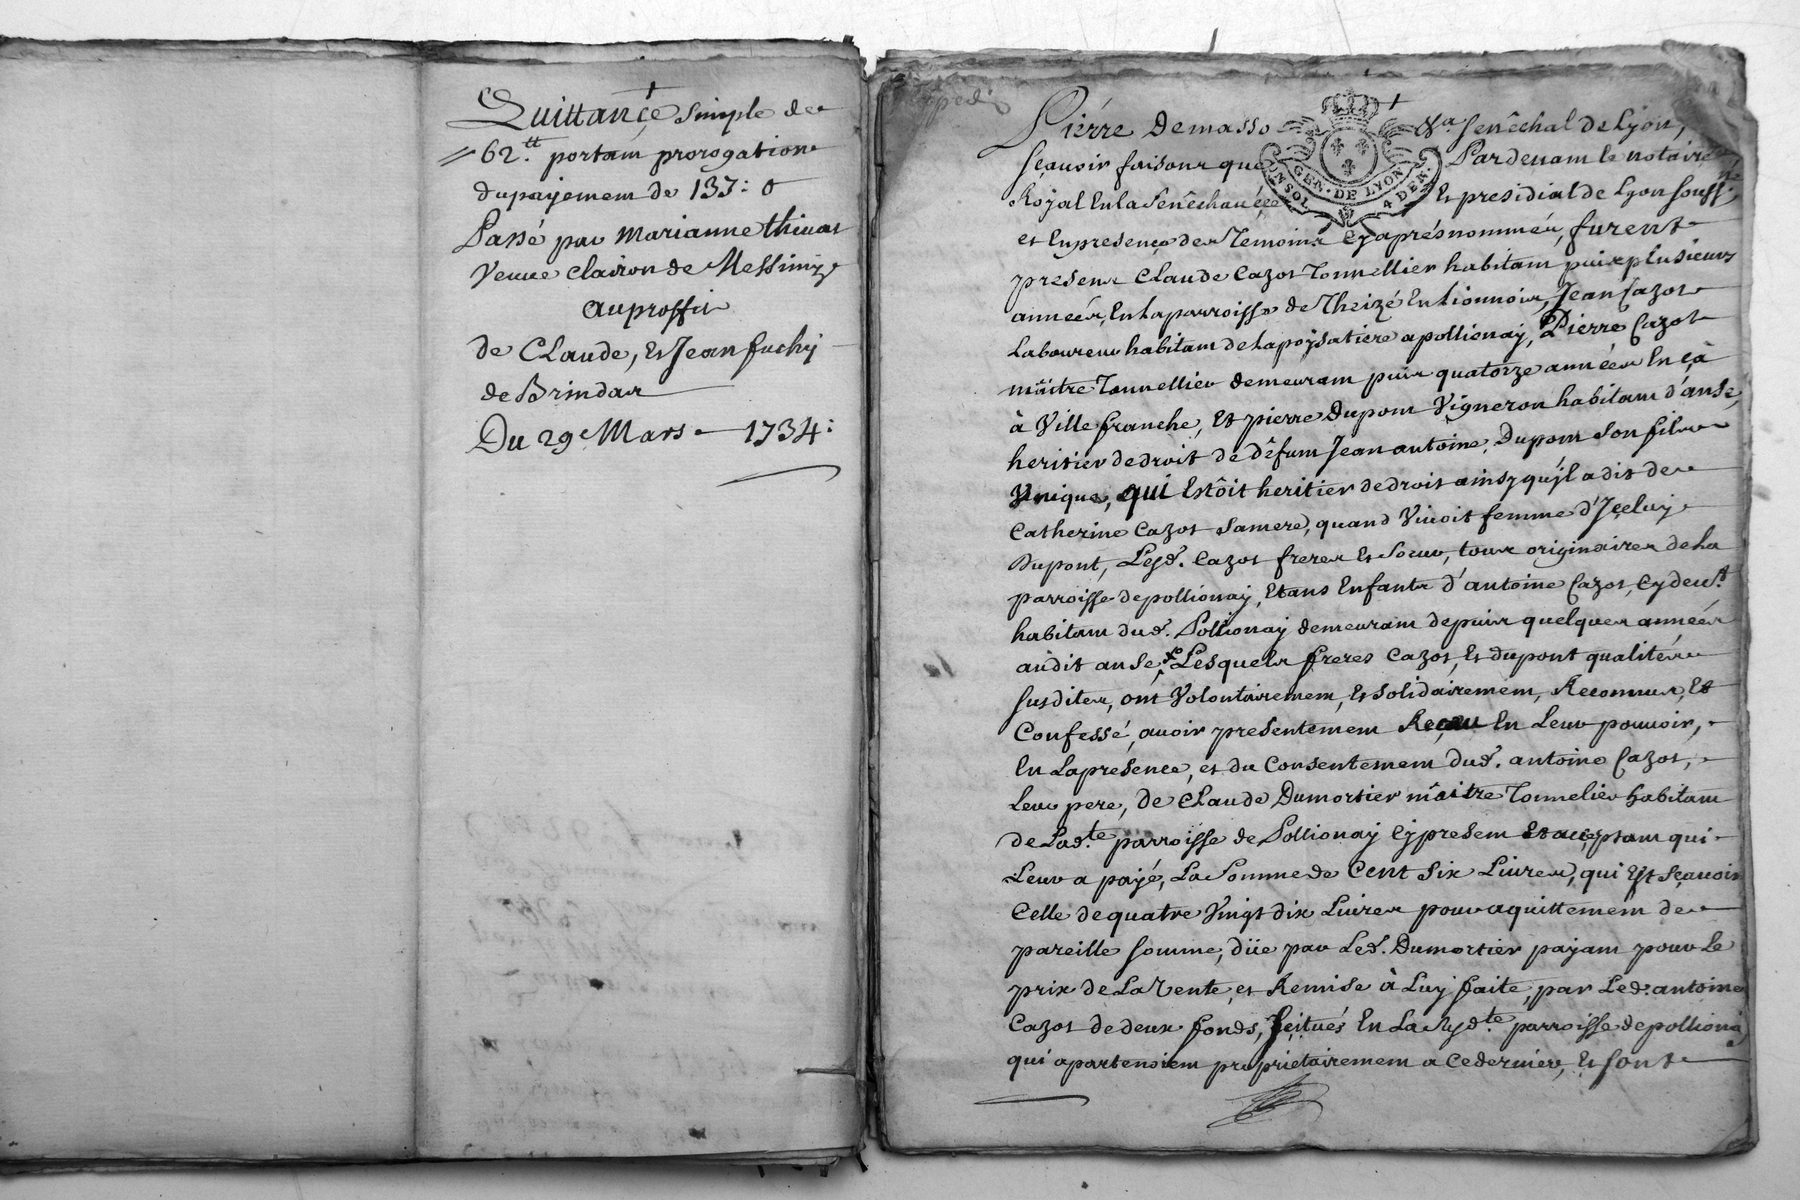 Quittançe simple de
62.tt portam prorogation
du payemem de 137: 0
Passé par Marianne thiuas
Veuue Clairon de Messimy
au proffit
de Claude, Et Jean fuchy
de Brindas
Du 29e Mars 1734:
Expedié
Piérre Demasso &a Senêchal de Lyon,
sçauoir faisons que Pardeuam le notaire
Royal En la Senêchauçée Et presidial de Lyon souss.né
GEN. DE LYON
CONSOL 4 DEN.
et En presençe des Temoins Cy aprés nommés, furent
presens Claude Cazot Tonnellier habitam puis plusieurs
années, En la parroisse de Theizé En lionnois, Jean Cazot
Laboureur habitam de la poysatiere a pollionay, Pierre Cazot
mâitre Tonnellier demeuram puis quatorze années En çà
à Ville franche, Et pierre Dupont Vigneron habitam d'anse,
heritier de droit de défum Jean antoine Dupont son fils
Vnique, qui Estoit heritier de droit ainsy qu'jl a dit de
Catherine Cazot sa mere, quand Viuoit femme d'Jçeluy
Dupont, Lesd. Cazot freres Et soeur, tous originaires de la
parroisse de pollionay, Etans Enfants d'antoine Cazot, Cy deu.t
habitam dud. Pollionay demeuram depuis quelques années
audit anse, Lesquels freres Cazot, Et dupont qualités
susdites, ont Volontairemem, Et solidairemem, Reconnus, Et
Confessé, auoir presentemem Reçeu En Leur pouuoir,
En La presence, et du Consentemem dud. antoine Cazot,
Leur pere, de Claude Dumortier mâitre Tonnelier habitam
de Lad.te parroisse de Pollionay Cy presem Et acceptam qui
Leur a payé, La somme de Cent six Liures, qui Est sçauoir
Celle de quatre Vingt dix Liures pour aquittemem de
pareille somme, düe par Led. Dumortier payam pour Le
prix de La Vente, et Remise à Luy faite, par Led. antoine
Cazot de deux fonds, scitués En La susd.te parroisse de pollionay
qui apartenoiem proprietairemem a Ce dernier, Et sont